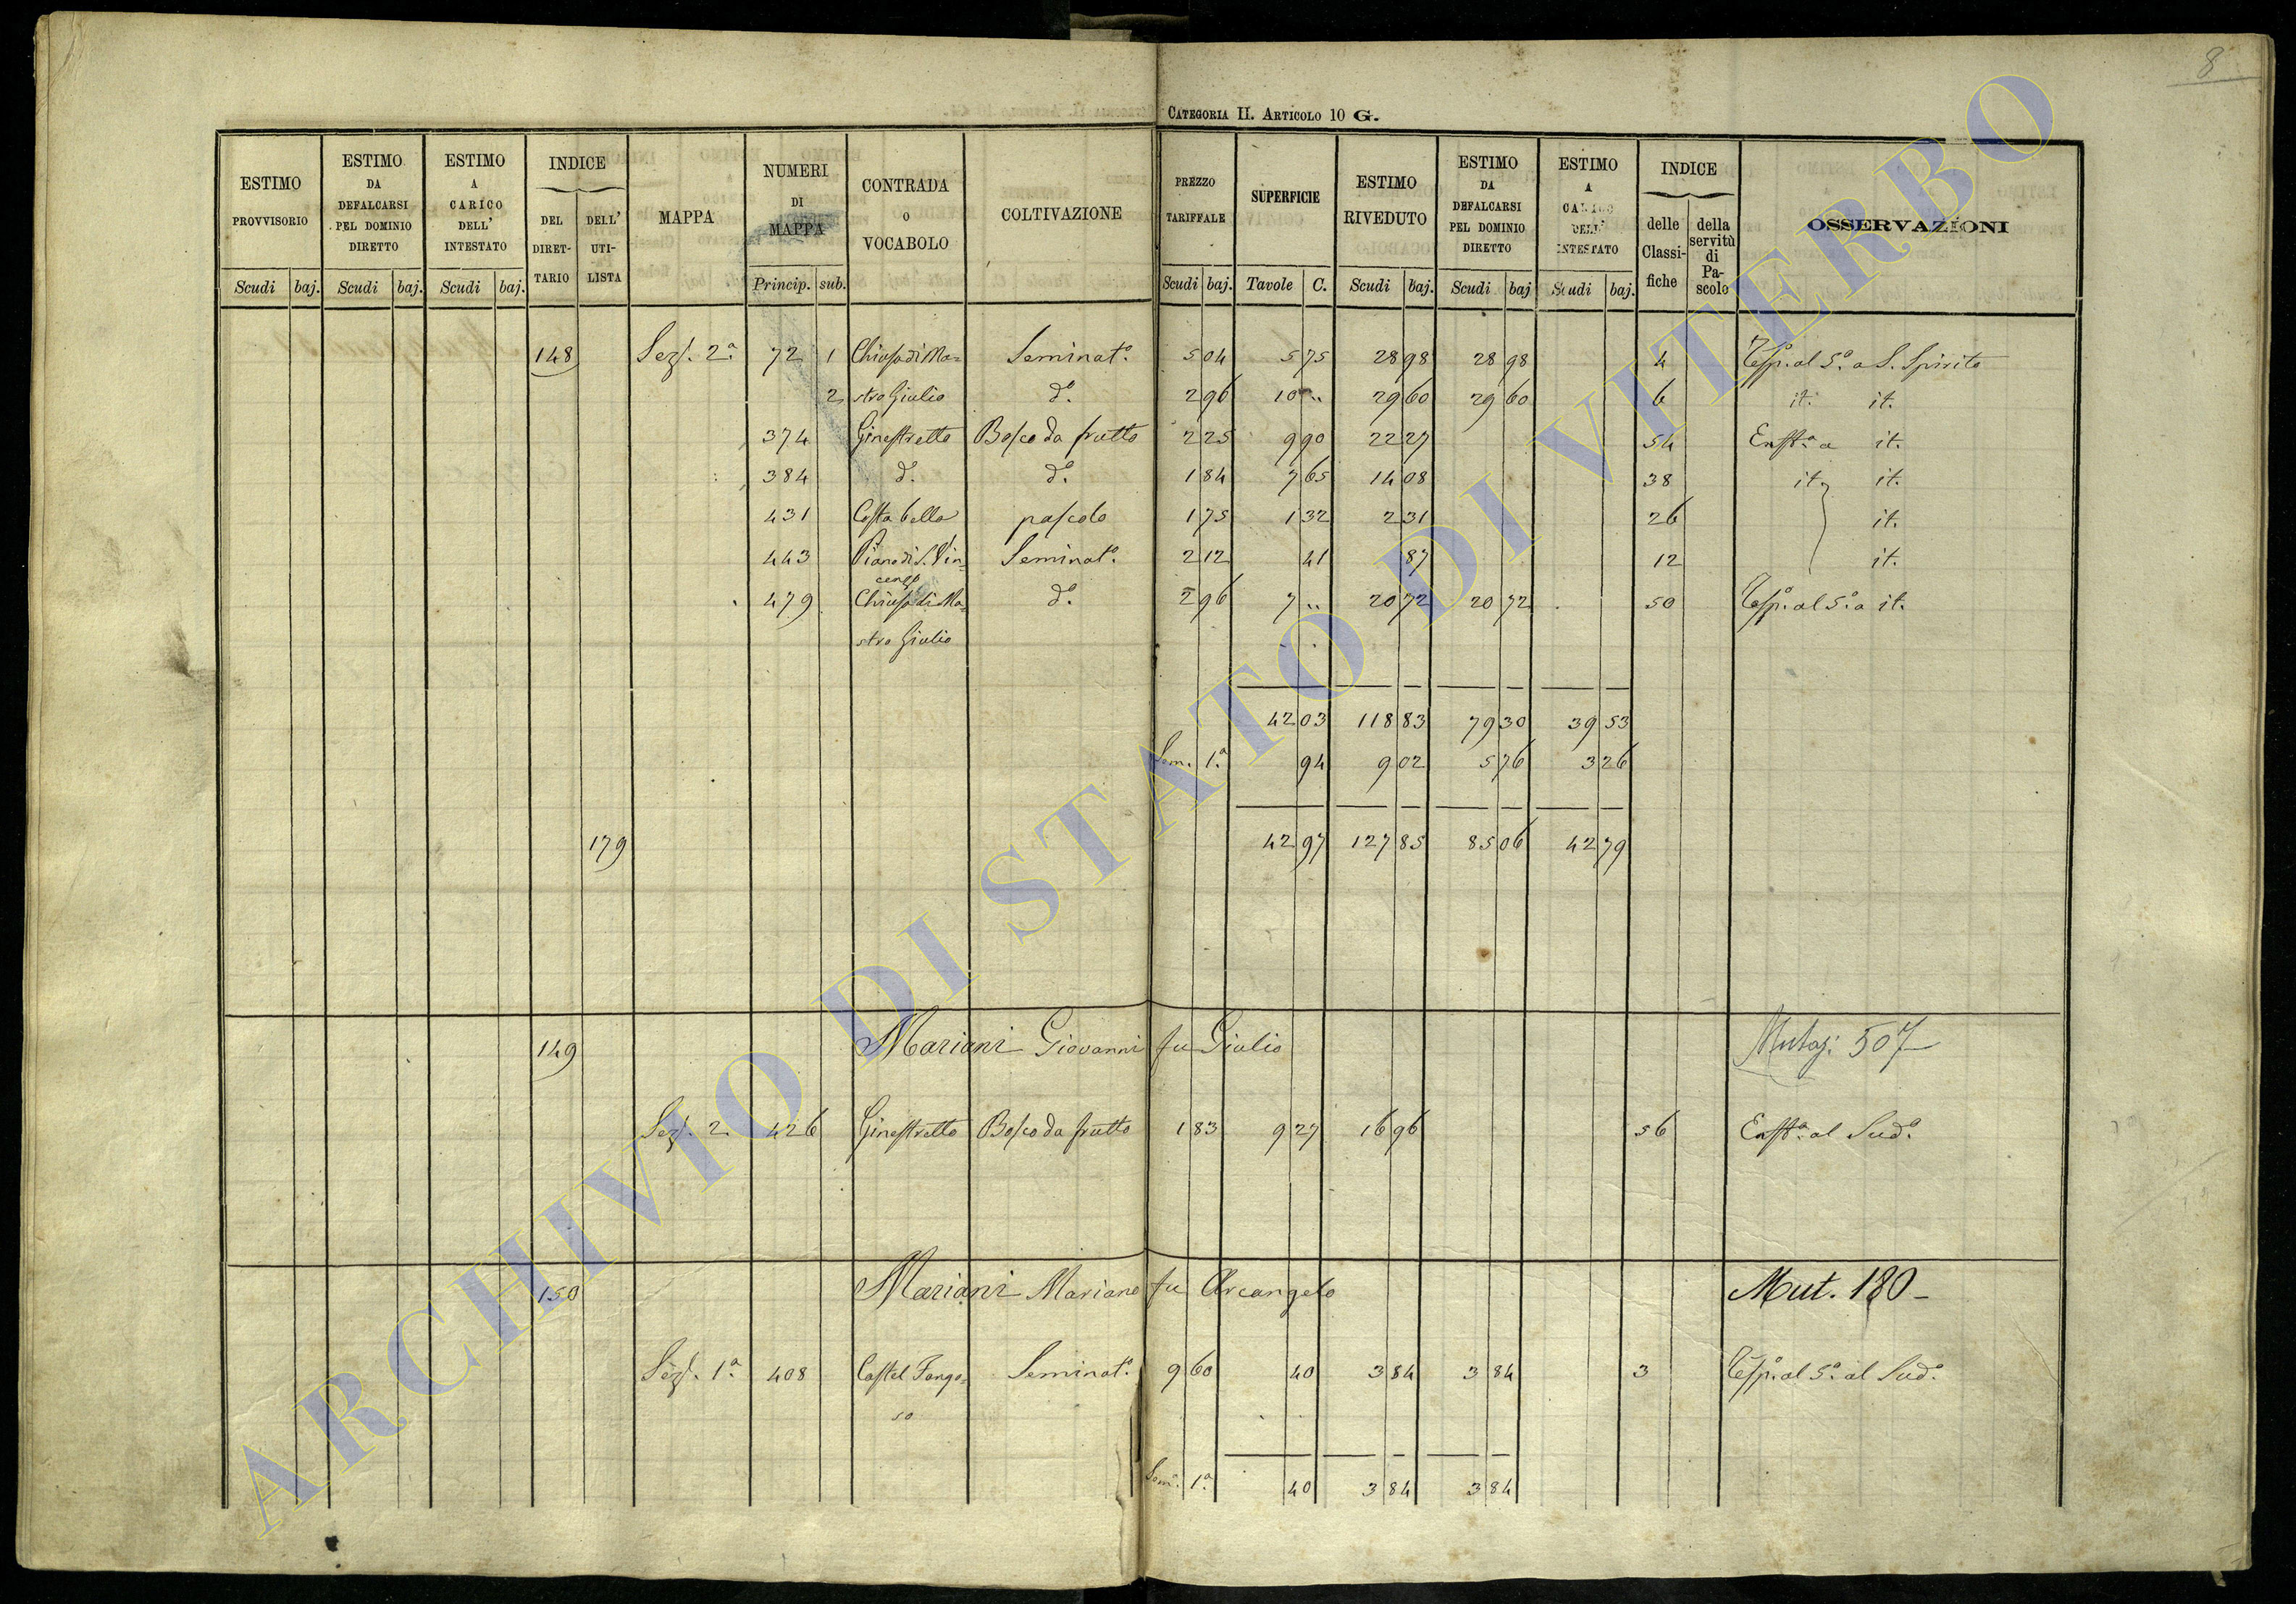 8
CATEGORIA II. ARTICOLO 10 G.
ESTIMO PROVVISORIO Scudi baj.
ESTIMO DA DEFALCARSI PEL DOMINIO DIRETTO Scudi baj.
ESTIMO A CARICO DELL' INTESTATO Scudi baj.
INDICE DEL DIRET-TARIO DELL' UTI-LISTA
MAPPA
NUMERI DI MAPPA Princip. sub.
CONTRADA O VOCABOLO
COLTIVAZIONE
PREZZO TARIFFALE Scudi baj.
SUPERFICIE Tavole C.
ESTIMO RIVEDUTO Scudi baj.
ESTIMO DA DEFALCARSI PEL DOMINIO DIRETTO Scudi baj
ESTIMO A CARICO DELL' INTESTATO Scudi baj.
INDICE delle Classi-fiche della servitù di Pa-scolo
OSSERVAZIONI
148 Sez. 2a. 72 1 Chiusa di Ma= Seminato. 5 04 5 75 28 98 28 98 4 Rispo. al 5o. a S. Spirito
2 stro Giulio do. 2 96 10 .. 29 60 29 60 6 it. it.
374 Ginestretto Bosco da frutto 2 25 9 90 22 27 54 Enfta. a it.
384 do. do. 1 84 7 65 14 08 38 it. it.
431 Costa bella pascolo 1 75 1 32 2 31 26 it.
443 Piano di S. Vin= Seminato. 2 12 41 87 12 it.
cenzo
479 Chiusa di Ma= do. 2 96 7 .. 20 72 20 72 50 Rispo. al 5o. a it.
stro Giulio
42 03 118 83 79 30 39 53
Sem. 1a. 94 9 02 5 76 3 26
179 42 97 127 85 85 06 42 79
149 Mariani Giovanni fu Giulio Mutaz: 507
Sez. 2. 426 Ginestretto Bosco da frutto 1 83 9 27 16 96 56 Enfta. al Sudo.
150 Mariani Mariano fu Arcangelo Mut. 180-
Sez. 1a. 408 Castel Fango= Seminato. 9 60 40 3 84 3 84 3 Rispo. al 5o. al Sudo.
so
Sem. 1a. 40 3 84 3 84
ARCHIVIO DI STATO DI VITERBO